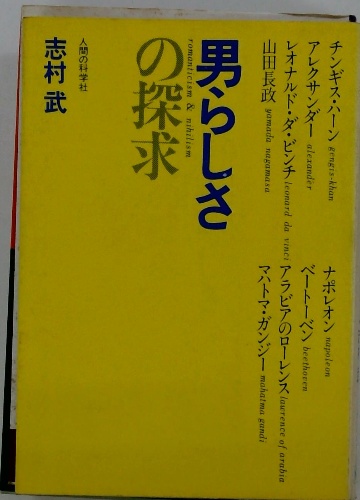 チンギス・ハーン gengis-khan
アレクサンダー alexander
レオナルド・ダ・ビンチ leonard da vinci
山田長政 yamada nagamasa
ナポレオン napoleon
ベートーベン beethoven
アラビアのローレンス lawrence of arabia
マハトマ・ガンジー mohatma gandi
男らしさ
romanticism & nihilism
の探求
人間の科学社
志村 武